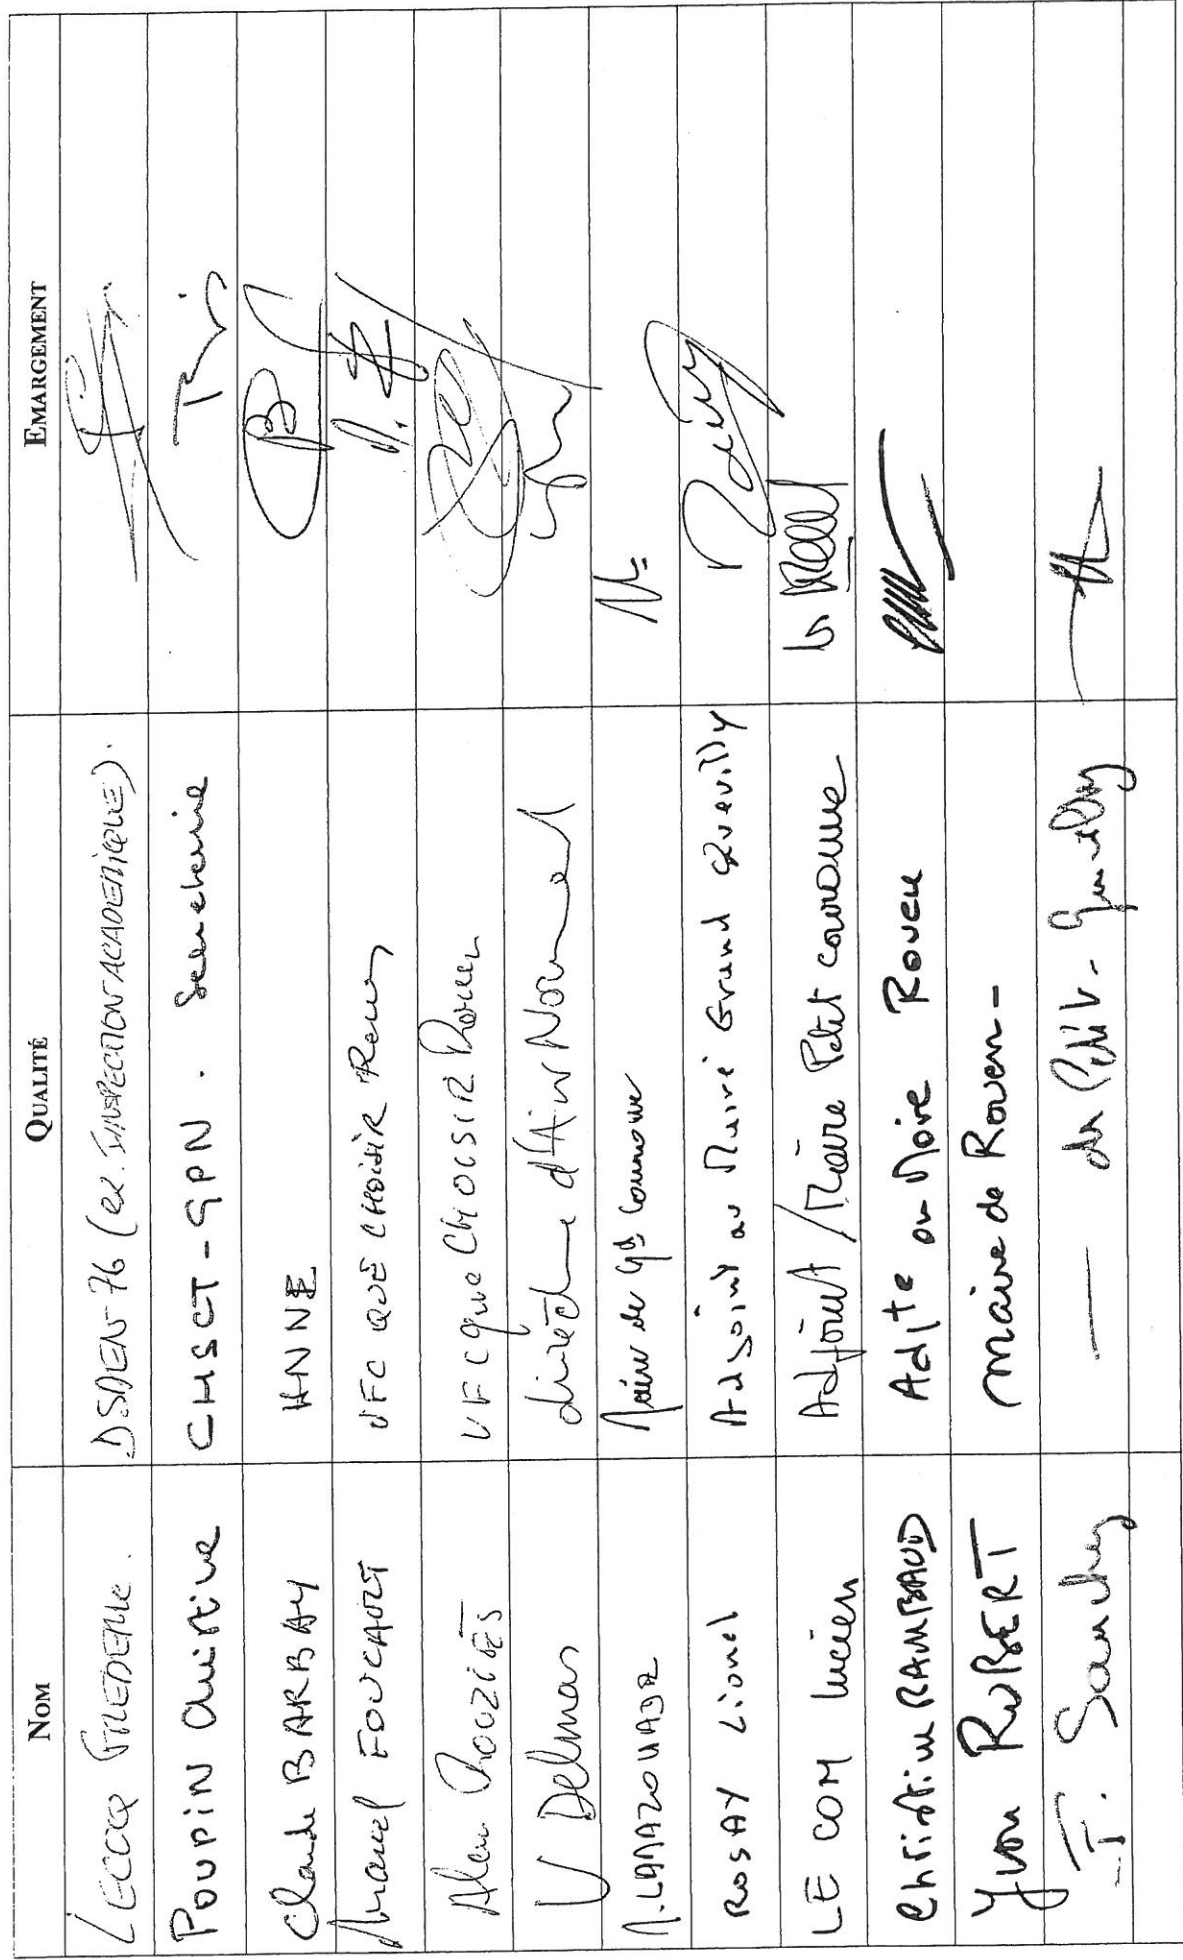 NOM QUALITÉ EMARGEMENT
LECCQ FREDERIC. DSDEN 76 (ex. INSPECTION ACADEMIQUE).
POUPIN Christine CHSCT - GPN. Seinechimie
Claude BARBAY HNNE
Marcel FOUCAULT UFC QUE CHOISIR Rouen
Alain ROUZIES UFC que CHOISIR Rouen
V Delmas directrice d'Air Normand
M. LAMAZOUADE Maire de Gd Couronne
ROSAY Lionel Adjoint au Maire Grand Quevilly
LE COM Lucien Adjoint / Maire Petit Couronne
Christine RAMBAUD Adjte au Maire Rouen
Yvon ROBERT Maire de Rouen -
F. Sanchez — de Petit - Quevilly